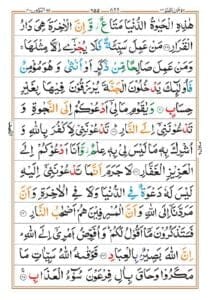 هٰذِهِ الْحَيٰوةُ الدُّنْيَا مَتَاعٌ وَّ اِنَّ الْاٰخِرَةَ هِیَ دَارُ
الْقَرَارِ مَنْ عَمِلَ سَيِّئَةً فَلَا يُجْزٰٓى اِلَّا مِثْلَهَا ۚ
وَمَنْ عَمِلَ صَالِحًا مِّنْ ذَكَرٍ اَوْ اُنْثٰى وَ هُوَ مُؤْمِنٌ
فَاُولٰٓئِكَ يَدْخُلُوْنَ الْجَنَّةَ يُرْزَقُوْنَ فِيْهَا بِغَيْرِ
حِسَابٍ وَيٰقَوْمِ مَا لِیْٓ اَدْعُوْكُمْ اِلَى النَّجٰوةِ وَ
تَدْعُوْنَنِیْٓ اِلَى النَّارِ تَدْعُوْنَنِیْ لِاَكْفُرَ بِاللّٰهِ وَ
اُشْرِكَ بِهٖ مَا لَيْسَ لِیْ بِهٖ عِلْمٌ وَّ اَنَا اَدْعُوْكُمْ اِلَى
الْعَزِيْزِ الْغَفَّارِ لَا جَرَمَ اَنَّمَا تَدْعُوْنَنِیْٓ اِلَيْهِ
لَيْسَ لَهٗ دَعْوَةٌ فِی الدُّنْيَا وَلَا فِی الْاٰخِرَةِ وَ اَنَّ
مَرَدَّنَآ اِلَى اللّٰهِ وَ اَنَّ الْمُسْرِفِيْنَ هُمْ اَصْحٰبُ النَّارِ
فَسَتَذْكُرُوْنَ مَآ اَقُوْلُ لَكُمْ ؕ وَاُفَوِّضُ اَمْرِیْٓ اِلَى اللّٰهِ ؕ
اِنَّ اللّٰهَ بَصِيْرٌۢ بِالْعِبَادِ فَوَقٰىهُ اللّٰهُ سَيِّاٰتِ مَا
مَكَرُوْا وَحَاقَ بِاٰلِ فِرْعَوْنَ سُوْٓءُ الْعَذَابِ